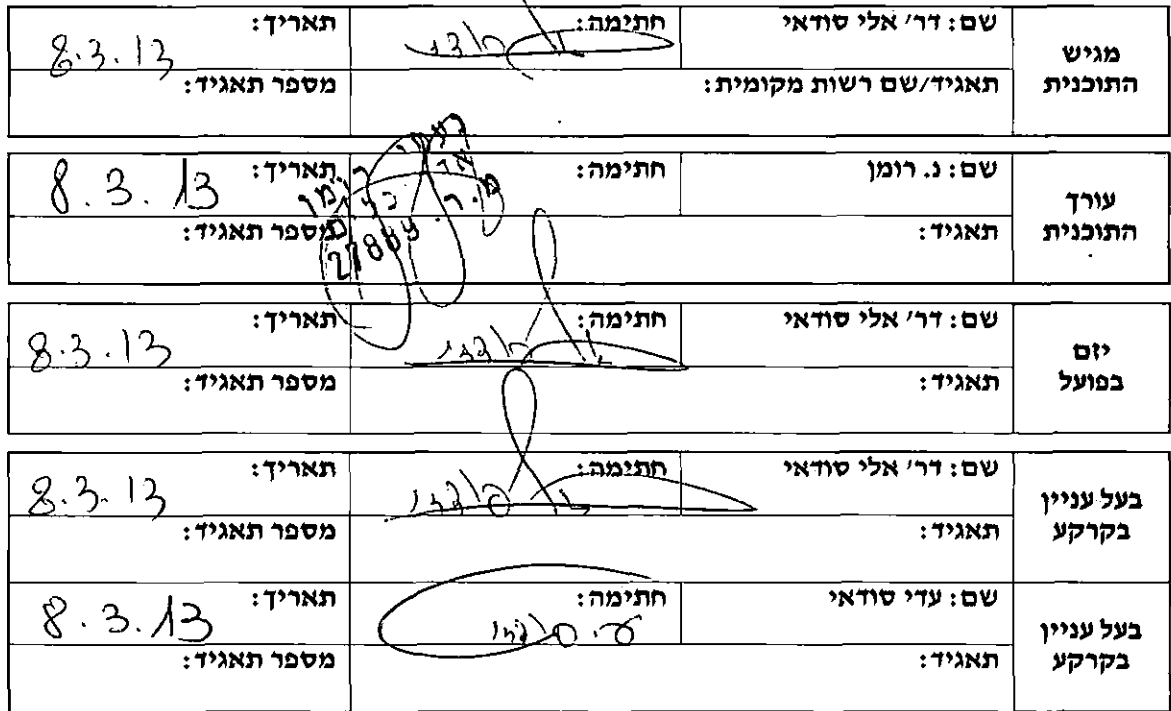 מגיש
התוכנית
שם: דר' אלי סודאי
חתימה:
תאריך:
8.3.13
תאגיד/שם רשות מקומית:
מספר תאגיד:
עורך
התוכנית
שם: נ. רומן
חתימה:
תאריך:
8.3.13
תאגיד:
מספר תאגיד:
27884
יזם
בפועל
שם: דר' אלי סודאי
חתימה:
תאריך:
8.3.13
תאגיד:
מספר תאגיד:
בעל עניין
בקרקע
שם: דר' אלי סודאי
חתימה:
תאריך:
8.3.13
תאגיד:
מספר תאגיד:
בעל עניין
בקרקע
שם: עדי סודאי
חתימה:
תאריך:
8.3.13
תאגיד:
מספר תאגיד: